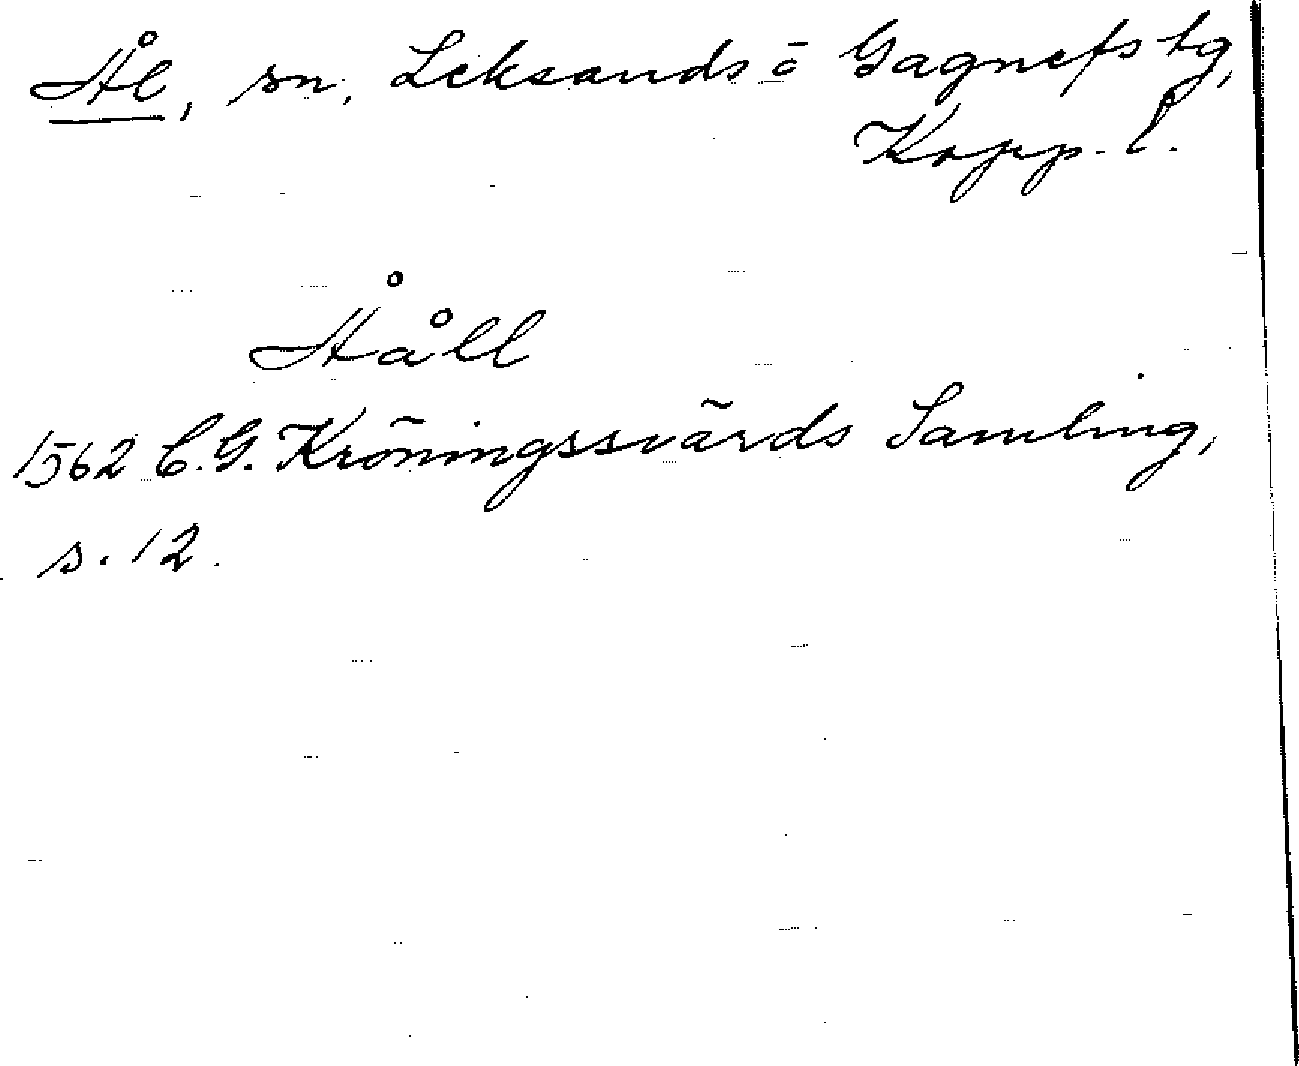 Ål, sn, Leksands o Gagnefs tg,
Kopp. l.
Ååll
1562 C.G. Kröningssvärds Samling,
s. 12.